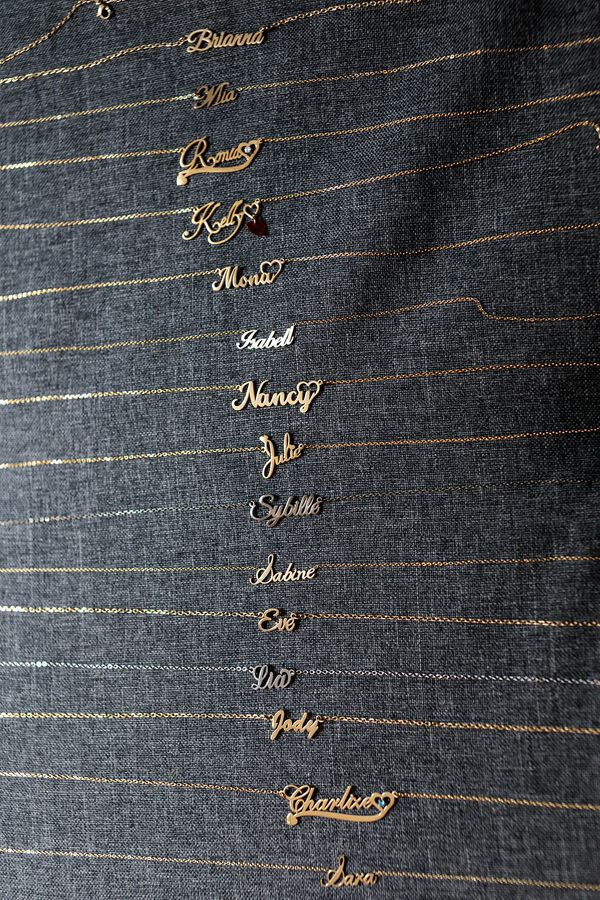 Brianna
Mia
Ronia
Kelly
Mona
Isabell
Nancy
Julie
Sybille
Sabine
Eve
Lia
Jody
Charlize
Sara